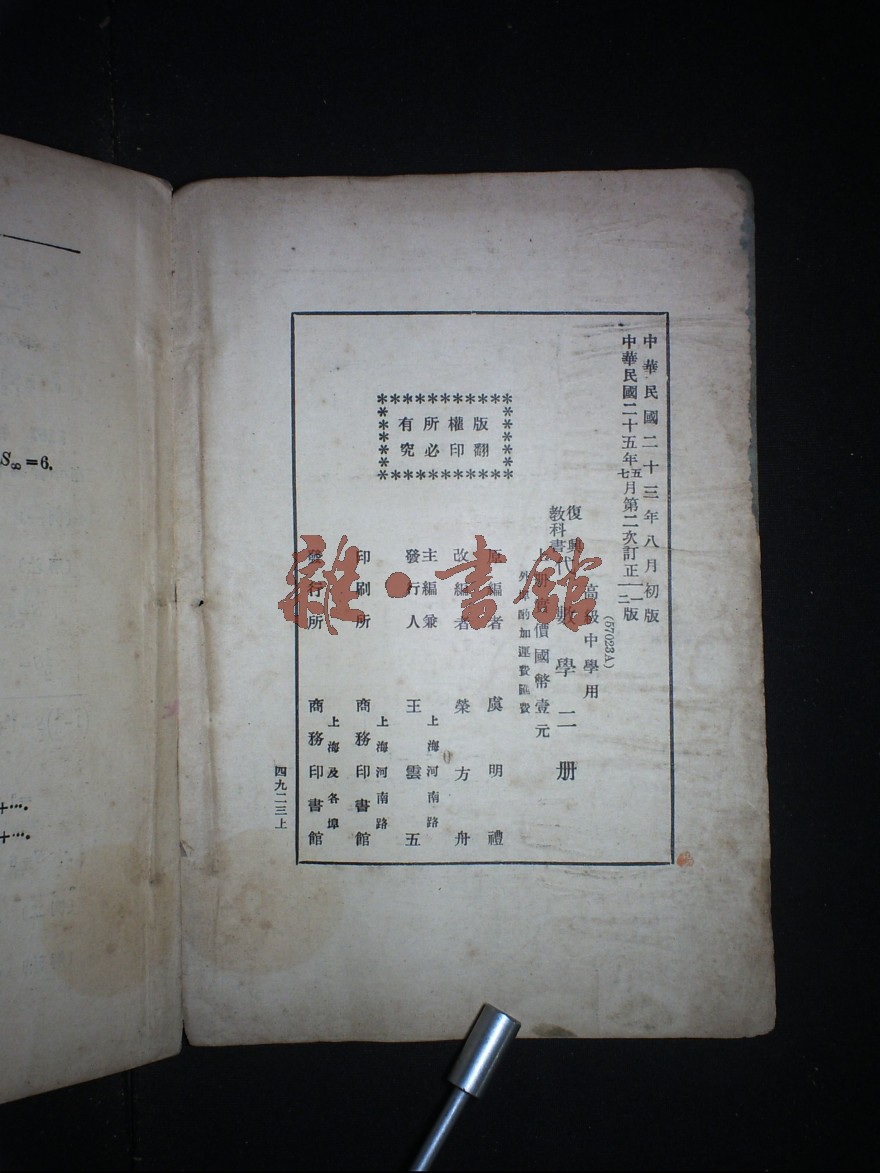 中華民國二十三年八月初版
中華民國二十五年五七月第二次訂正一二版
(57023A)
高級中學用
復興教科書
代數學二册
上册實價國幣壹元
外埠酌加運費匯費
版權所有
翻印必究
原編者 虞明禮
改編者 榮方舟
主編兼發行人 上海河南路 王雲五
印刷所 上海河南路 商務印書館
發行所 上海及各埠 商務印書館
四九二三上
S∞=6.
+….
+….
雜·書館